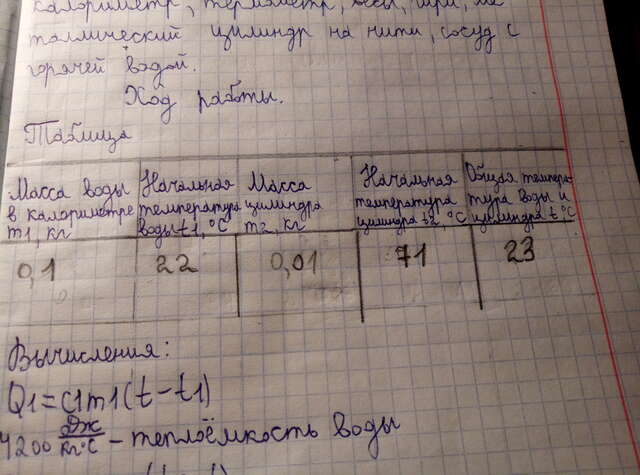 калориметр, термометр, весы, гири, ме
таллический цилиндр на нити, сосуд с
горячей водой.
Ход работы.
Таблица
Масса воды
в калориметре
m1, кг
Начальная
температура
воды t1, °C
Масса
цилиндра
m2, кг
Начальная
температура
цилиндра t2, °C
Общая темпера
тура воды и
цилиндра t °C
0,1
22
0,01
71
23
Вычисления:
Q1=c1m1(t-t1)
4200 Дж/кг·°C - теплоёмкость воды